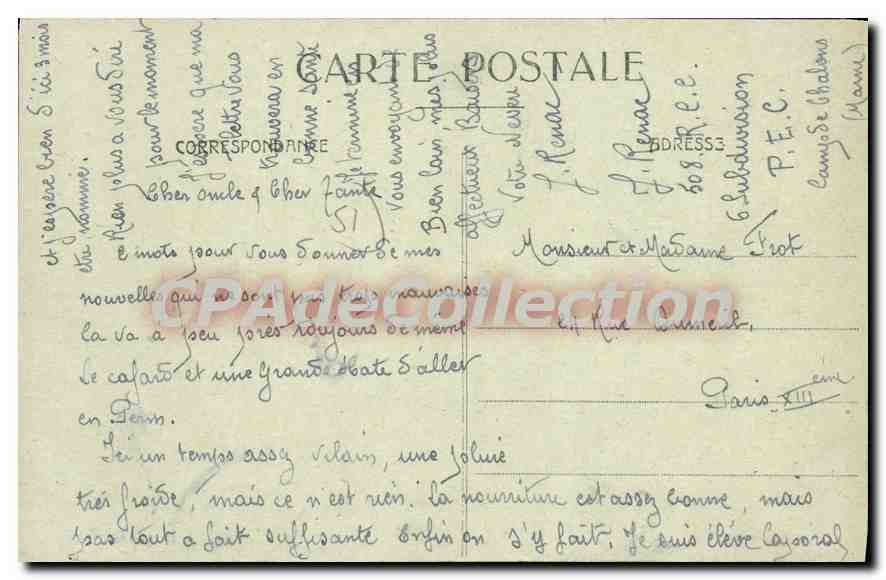 CARTE POSTALE
CORRESPONDANCE
ADRESSE
Cher oncle & Cher Tante
2 mots pour vous donner de mes
nouvelles qui ne sont pas trop mauvaises
Ca va à peu près toujours de même
Le cafard et une grande hate d'aller
en Perm.
Ici un temps assez vilain, une pluie
très froide, mais ce n'est rien. La nourriture est assez bonne, mais
pas tout a fait suffisante Enfin on s'y fait. Je suis élève Caporal
et j'espère bien d'ici 3 mois
être nommé.
Rien plus a vous dire
pour le moment
J'espère que ma
lettre vous
trouvera en
bonne santé
Je termine en
vous envoyant de
Bien loin mes plus
affectueux Baisers
Votre Neveu
J. Renac
J. Renac
508. R.C.C.
6 Subdivision
P.E.C.
Camp de Chalons
(Marne)
Monsieur et Madame Frot
Rue
Paris XIII ème
51
CPAdeCollection